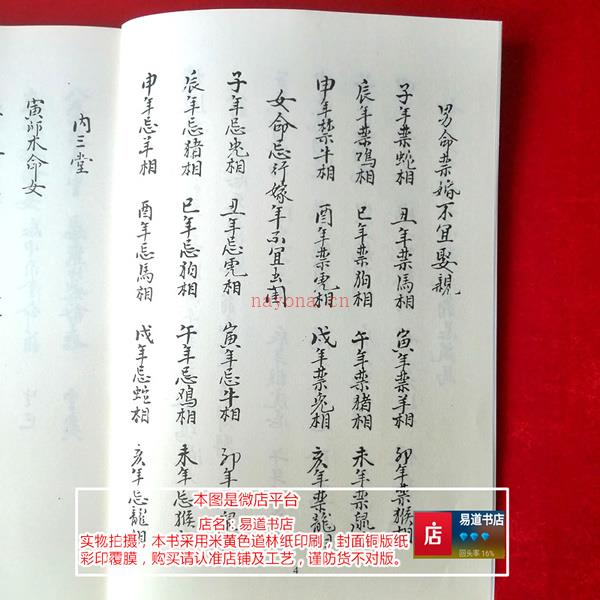 男命禁婚不宜娶親
子年禁蛇相 丑年禁馬相 寅年禁羊相 卯年禁猴相
辰年禁鸡相 巳年禁狗相 午年禁猪相 未年禁鼠
申年禁牛相 酉年禁虎相 戌年禁兔相 亥年禁龍相
女命忌行嫁年不宜出閣
子年忌兔相 丑年忌虎相 寅年忌牛相 卯年忌鼠
辰年忌猪相 巳年忌狗相 午年忌鸡相 未年忌猴
申年忌羊相 酉年忌馬相 戌年忌蛇相 亥年忌龍相
内三堂
寅卯木命女
nayona.cn
本图是微店平台
店名：易道书店
实物拍摄，本书采用米黄色道林纸印刷，封面铜版纸
彩印覆膜，购买请认准店铺及工艺，谨防货不对版。
店
易道书店
回头率 16%
4